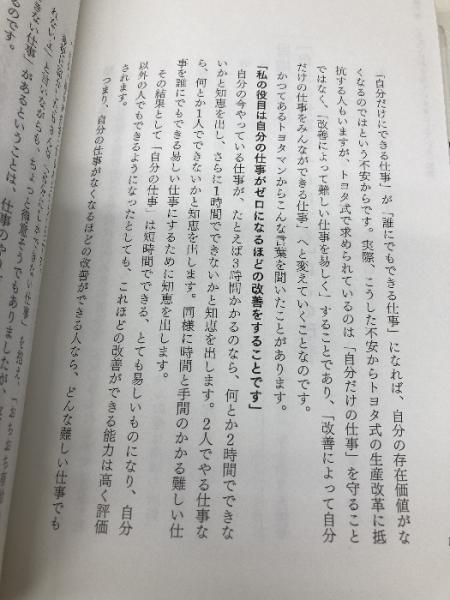 「自分だけにできる仕事」が「誰にでもできる仕事」になれば、自分の存在価値がな
くなるのではという不安からです。実際、こうした不安からトヨタ式の生産改革に抵
抗する人もいますが、トヨタ式で求められているのは「自分だけの仕事」を守ること
ではなく、「改善によって難しい仕事を易しく」することであり、「改善によって自分
だけの仕事をみんなができる仕事」へと変えていくことなのです。
かつてあるトヨタマンからこんな言葉を聞いたことがあります。
「私の役目は自分の仕事がゼロになるほどの改善をすることです」
自分の今やっている仕事が、たとえば3時間かかるのなら、何とか2時間でできな
いかと知恵を出し、さらに1時間でできないかと知恵を出します。2人でやる仕事な
ら、何とか1人でできないかと知恵を出します。同様に時間と手間のかかる難しい仕
事を誰にでもできる易しい仕事にするために知恵を出します。
その結果として「自分の仕事」は短時間でできる、とても易しいものになり、自分
以外の人でもできるようになったとしても、これほどの改善ができる能力は高く評価
されます。
つまり、自分の仕事がなくなるほどの改善ができる人なら、どんな難しい仕事でも
と言いながらも、ちょっと得意そうでもありましたが、
きない仕事」があるということは、仕事の
るのです。